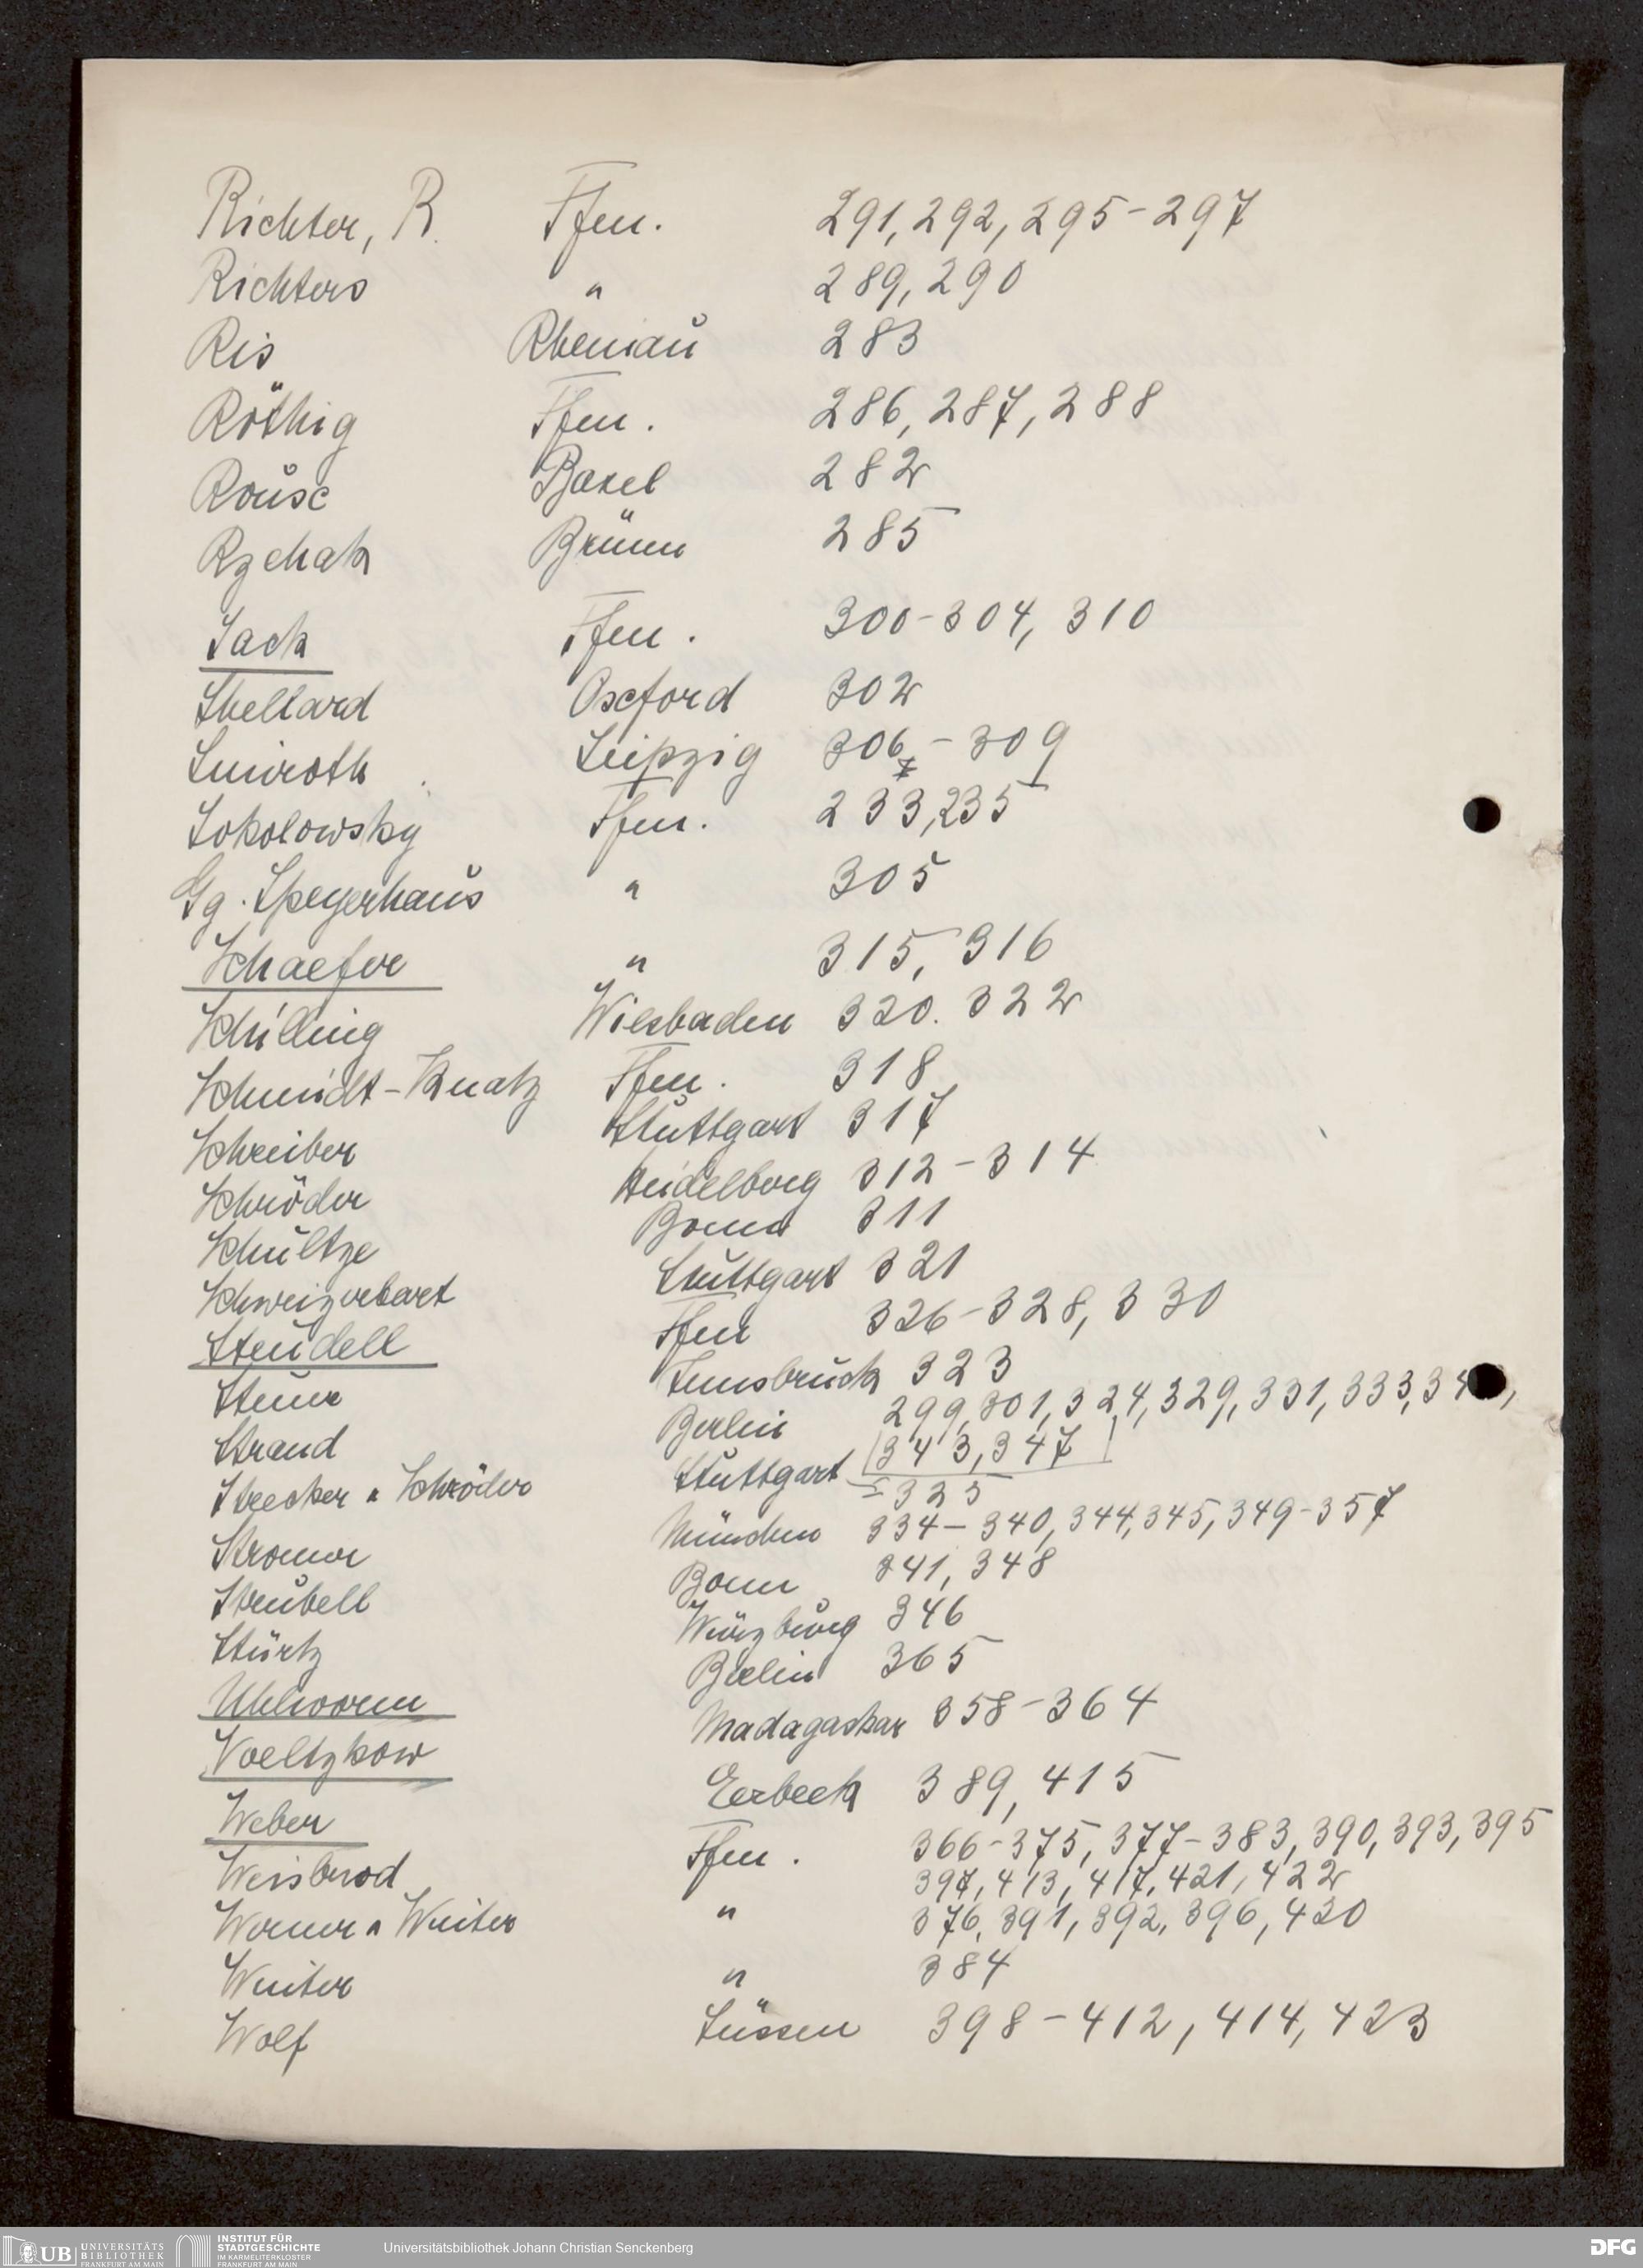 Richter, R. Ffm. 291, 292, 295-297
Richters " 289, 290
Ris Rheinau 283
Röthig Ffm. 286, 287, 288
Roux Basel 282
Rzehak Brünn 285
Sack Ffm. 300-304, 310
Shellard Oxford 302
Simroth Leipzig 306-309
Sokolowsky Ffm. 233, 235
Gg. Speyerhaus " 305
Schaefer " 315, 316
Schilling Wiesbaden 320. 322
Schmidt-Knatz Ffm. 318
Schreiber Stuttgart 317
Schröder Heidelberg 312-314
Schultze Bonn 311
Schweizerbart Stuttgart 321
Steudell Ffm 326-328, 330
Steuer Innsbruck 323
Strand Berlin 299, 301, 324, 329, 331, 333, 34
343, 347
Strecker u Schröder Stuttgart 325
Stromer München 334-340, 344, 345, 349-357
Strubell Bonn 341, 348
Stürtz Würzburg 346
Uhlworm Berlin 365
Voeltzkow Madagaskar 358-364
Weber Eerbeek 389, 415
Weisbrod Ffm. 366-375, 377-383, 390, 393, 395
397, 413, 417, 421, 422
Werner u Winter " 376, 391, 392, 396, 420
Winter " 384
Wolf Füssen 398-412, 414, 423
UB UNIVERSITÄTS BIBLIOTHEK FRANKFURT AM MAIN
INSTITUT FÜR STADTGESCHICHTE IM KARMELITERKLOSTER FRANKFURT AM MAIN
Universitätsbibliothek Johann Christian Senckenberg
DFG